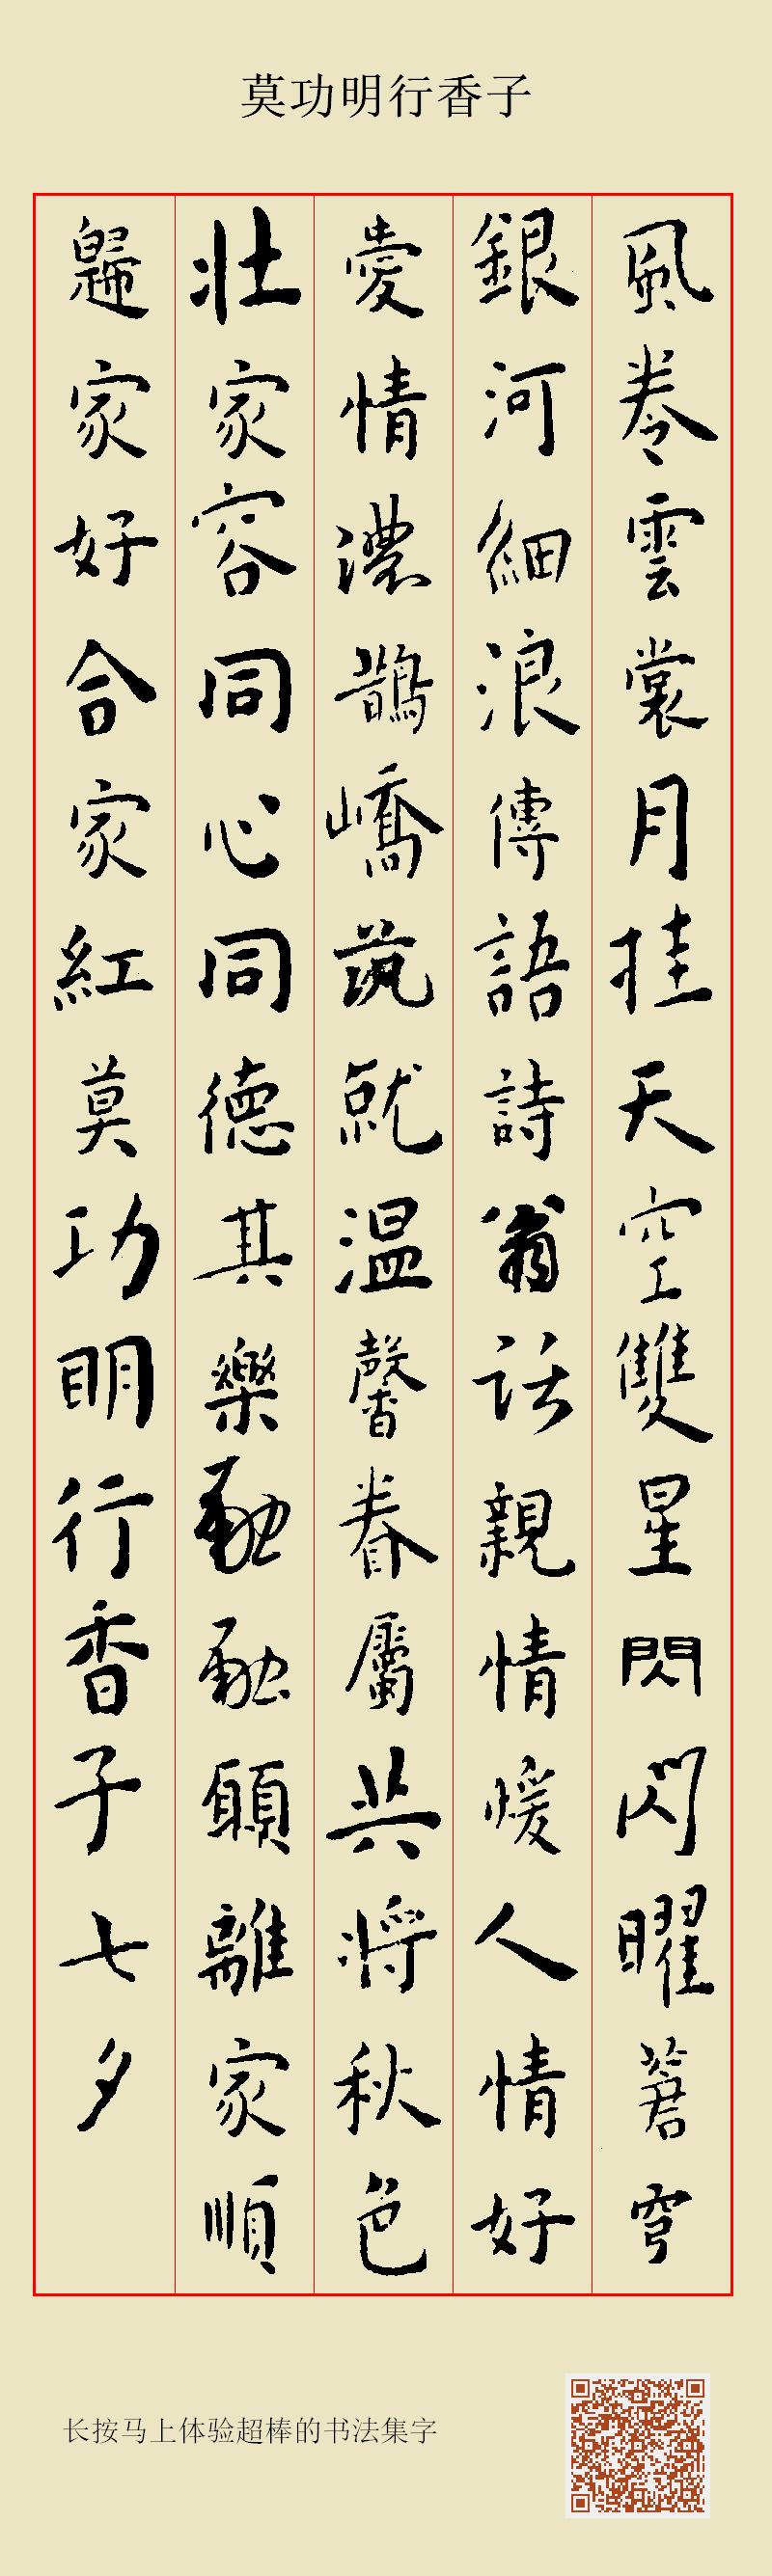 莫功明行香子
風卷雲裳月挂天空雙星閃閃曜蒼穹
銀河細浪傳語詩翁話親情暖人情好
愛情濃鵲嶠筑就温馨眷屬共将秋色
壮家容同心同德其樂融融願離家順
歸家好合家紅莫功明行香子七夕
长按马上体验超棒的书法集字